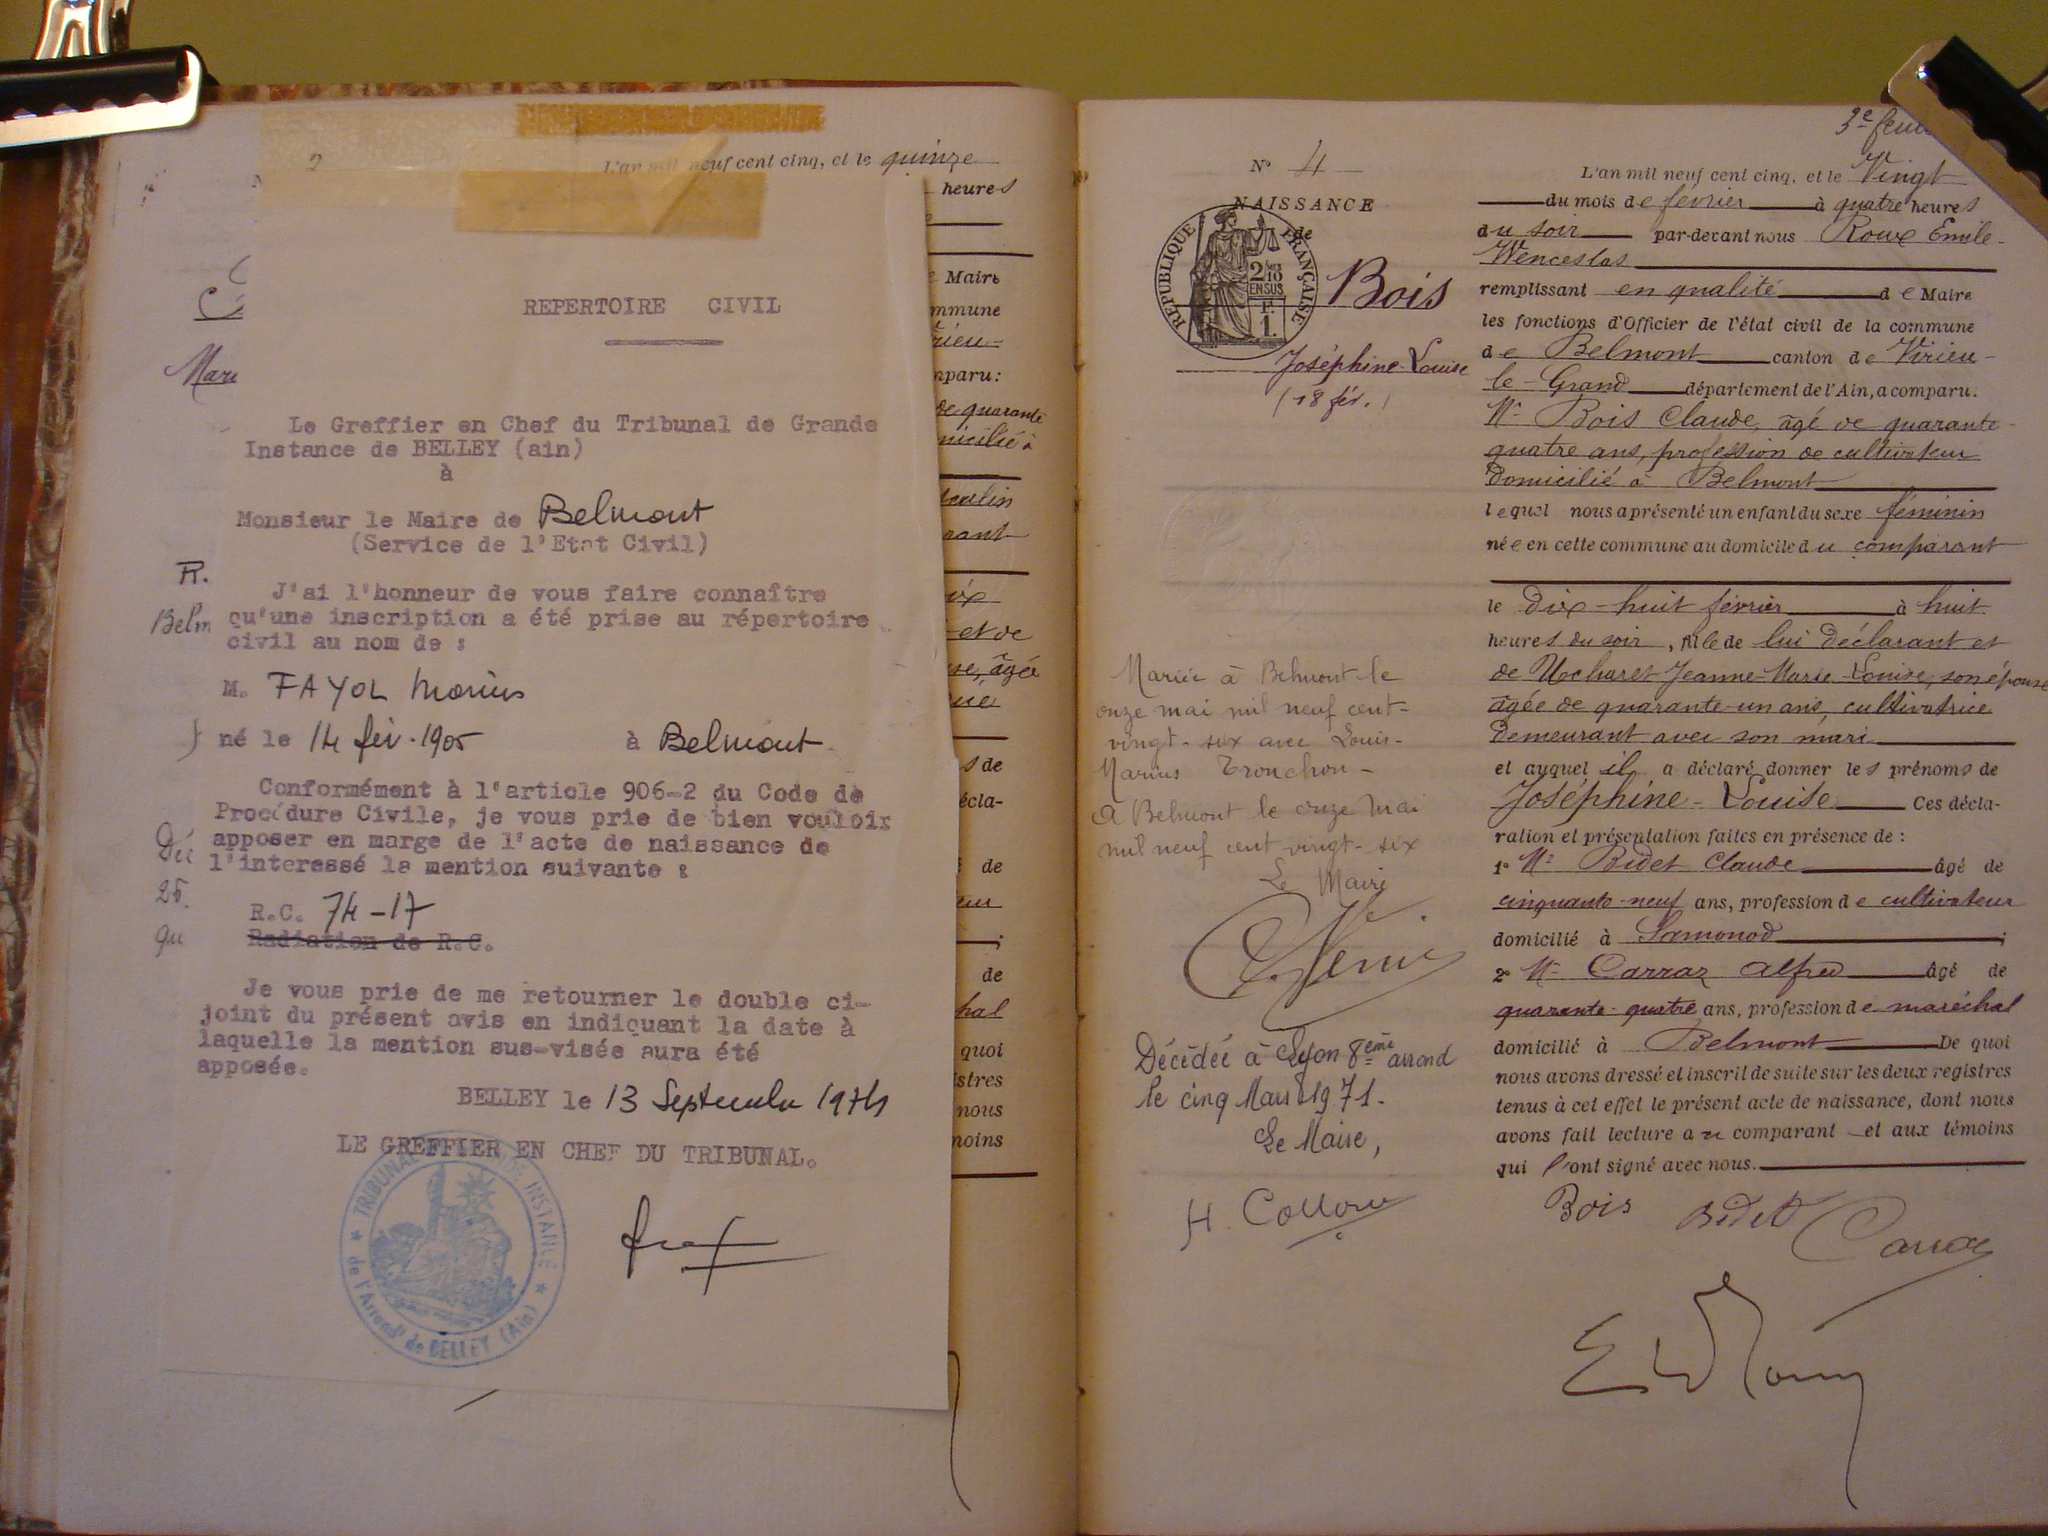 2
L'an mil neuf cent cinq, et le quinze
heures
Maire
mmune
rieu
mparu:
de quarante
micilié à
sculin
rant
ix
et de
se, âgée
s de
écla-
de
eur
;
de
hal
quoi
istres
nous
moins
Mari
R.
Belm
Déc
25.
qu
REPERTOIRE CIVIL
Le Greffier en Chef du Tribunal de Grande
Instance de BELLEY (ain)
à
Monsieur le Maire de Belmont
(Service de l'Etat Civil)
J'ai l'honneur de vous faire connaître
qu'une inscription a été prise au répertoire
civil au nom de :
M. FAYOL Marius
né le 14 fév. 1905 à Belmont
Conformément à l'article 906-2 du Code de
Procédure Civile, je vous prie de bien vouloir
apposer en marge de l'acte de naissance de
l'interessé la mention suivante :
R.C. 74-17
Radiation de R.C.
Je vous prie de me retourner le double ci-
joint du présent avis en indiquant la date à
laquelle la mention sus-visée aura été
apposée.
BELLEY le 13 Septembre 1974
LE GREFFIER EN CHEF DU TRIBUNAL.
TRIBUNAL DE GRANDE INSTANCE
de l'Arrond' de BELLEY (Ain)
3e feui
N° 4
NAISSANCE
de
RÉPUBLIQUE FRANÇAISE
2/10
EN SUS
1 F.
Bois
Joséphine-Louise
(18 fév.)
Mariée à Belmont le
onze mai mil neuf cent-
vingt-six avec Louis-
Marius Tronchon-
A Belmont le onze Mai
mil neuf cent vingt-six
Le Maire
Décédée à Lyon 8ème arrond
le cinq Mars 1971.
Le Maire,
L'an mil neuf cent cinq, et le Vingt
du mois de février à quatre heures
du soir par-devant nous Roux Emile-
Wenceslas
remplissant en qualité de Maire
les fonctions d'Officier de l'état civil de la commune
de Belmont canton de Virieu-
le-Grand département de l'Ain, a comparu.
Mr Bois Claude, âgé de quarante-
quatre ans, profession de cultivateur
domicilié à Belmont
lequel nous a présenté un enfant du sexe féminin
née en cette commune au domicile du comparant
le dix-huit février à huit
heures du soir, fille de lui déclarant et
de Jeanne-Marie-Louise, son épouse
âgée de quarante-un ans, cultivatrice
demeurant avec son mari
et auquel il a déclaré donner les prénoms de
Joséphine-Louise Ces décla-
ration et présentation faites en présence de :
1° Mr Bidet Claude âgé de
cinquante-neuf ans, profession de cultivateur
domicilié à Samonod ;
2° Mr Carraz Alfred âgé de
quarante-quatre ans, profession de maréchal
domicilié à Belmont De quoi
nous avons dressé et inscrit de suite sur les deux registres
tenus à cet effet le présent acte de naissance, dont nous
avons fait lecture au comparant et aux témoins
qui l'ont signé avec nous.
Bois Bidet Carraz